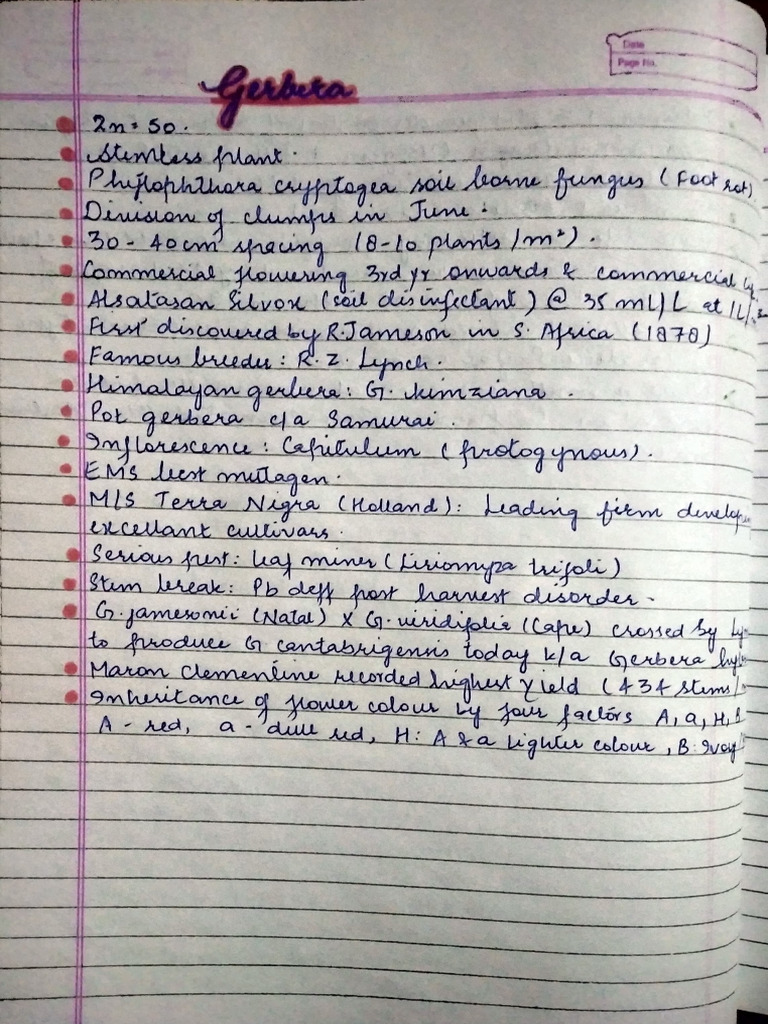 Date
Page No.
Gerbera
2n = 50.
Stemless plant.
Phytophthora cryptogea soil borne fungus (Foot rot)
Division of clumps in June.
30 - 40cm spacing (8-10 plants/m²).
Commercial flowering 3rd yr onwards & commercial
Alsatasan Silvox (soil disinfectant) @ 35 mL/L at 1L/
First discovered by R. Jameson in S. Africa (1878)
Famous breeder: R. Z. Lynch.
Himalayan gerbera: G. kunziana.
Pot gerbera c/a Samurai.
Inflorescence: Capitulum (protogynous).
EMS best mutagen.
M/S Terra Nigra (Holland): Leading firm develop
excellant cultivars.
Serious pest: leaf miner (Liriomyza trifoli)
Stem break: Pb deff post harvest disorder.
G. jamesonii (Natal) X G. viridifolia (Cape) crossed by Ly
to produce G cantabrigensis today k/a Gerbera hy
Maron Clementine recorded highest yield (434 stems/
Inheritance of flower colour by four factors A, a, H, B
A - red, a - dull red, H: A & a lighter colour, B: Ivory